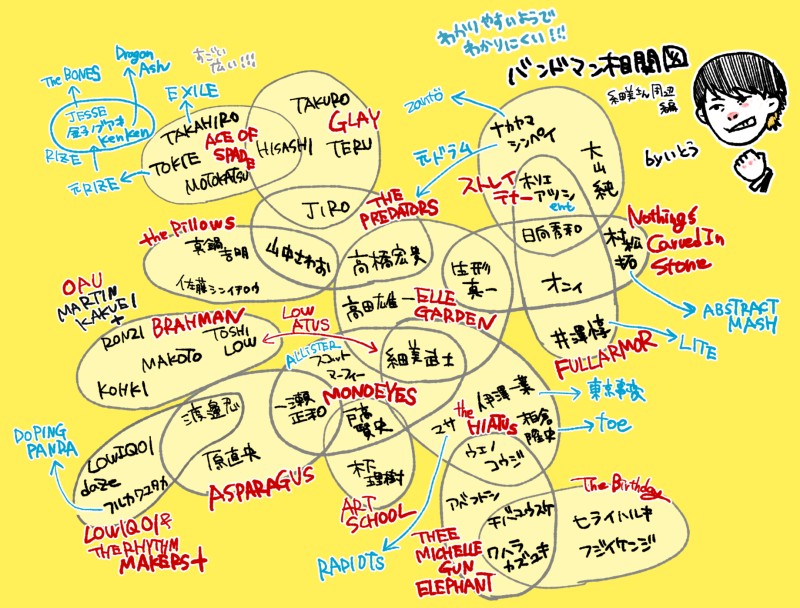 わかりやすいようで
わかりにくい!!!
バンドマン相関図
細美さん周辺
編
byいとう
すごい
広い!!!
The BONES
Dragon
Ash
JESSE
金子ノブアキ
KenKen
RIZE
元RIZE
EXILE
TAKAHIRO
ACE OF
SPADE
TOKIE
MOTOKATSU
HISASHI
TAKURO
GLAY
TERU
JIRO
THE
PREDATORS
the pillows
真鍋
吉明
佐藤シンイチロウ
山中さわお
高橋宏貴
zantö
元ドラム
ナカヤマ
シンペイ
大山
純
ストレイ
テナー
ホリエ
アツシ
ent
日向秀和
Nothing's
Carved In
Stone
村松
拓
ABSTRACT
MASH
生形
真一
オニィ
井澤惇
LITE
FULLARMOR
高田雄一
ELLE
GARDEN
細美武士
OAU
MARTIN
KAKUEI
+
BRAHMAN
RONZI
TOSHI
LOW
MAKOTO
KOHKI
LOW
ATUS
ALLiSTER
スコット
マーフィー
MONOEYES
一瀬
正和
戸高
賢史
木下
理樹
ART
SCHOOL
渡邊忍
原直央
ASPARAGUS
DOPING
PANDA
LOWIQ01
daze
フルカワユタカ
LOWIQ01&
THE RHYTHM
MAKERS+
the
HIATUS
伊澤一葉
東京事変
柏倉
隆史
toe
マサ
RADIOTS
ウエノ
コウジ
アベフトシ
チバユウスケ
クハラ
カズユキ
THEE
MICHELLE
GUN
ELEPHANT
The Birthday
ヒライハルキ
フジイケンジ